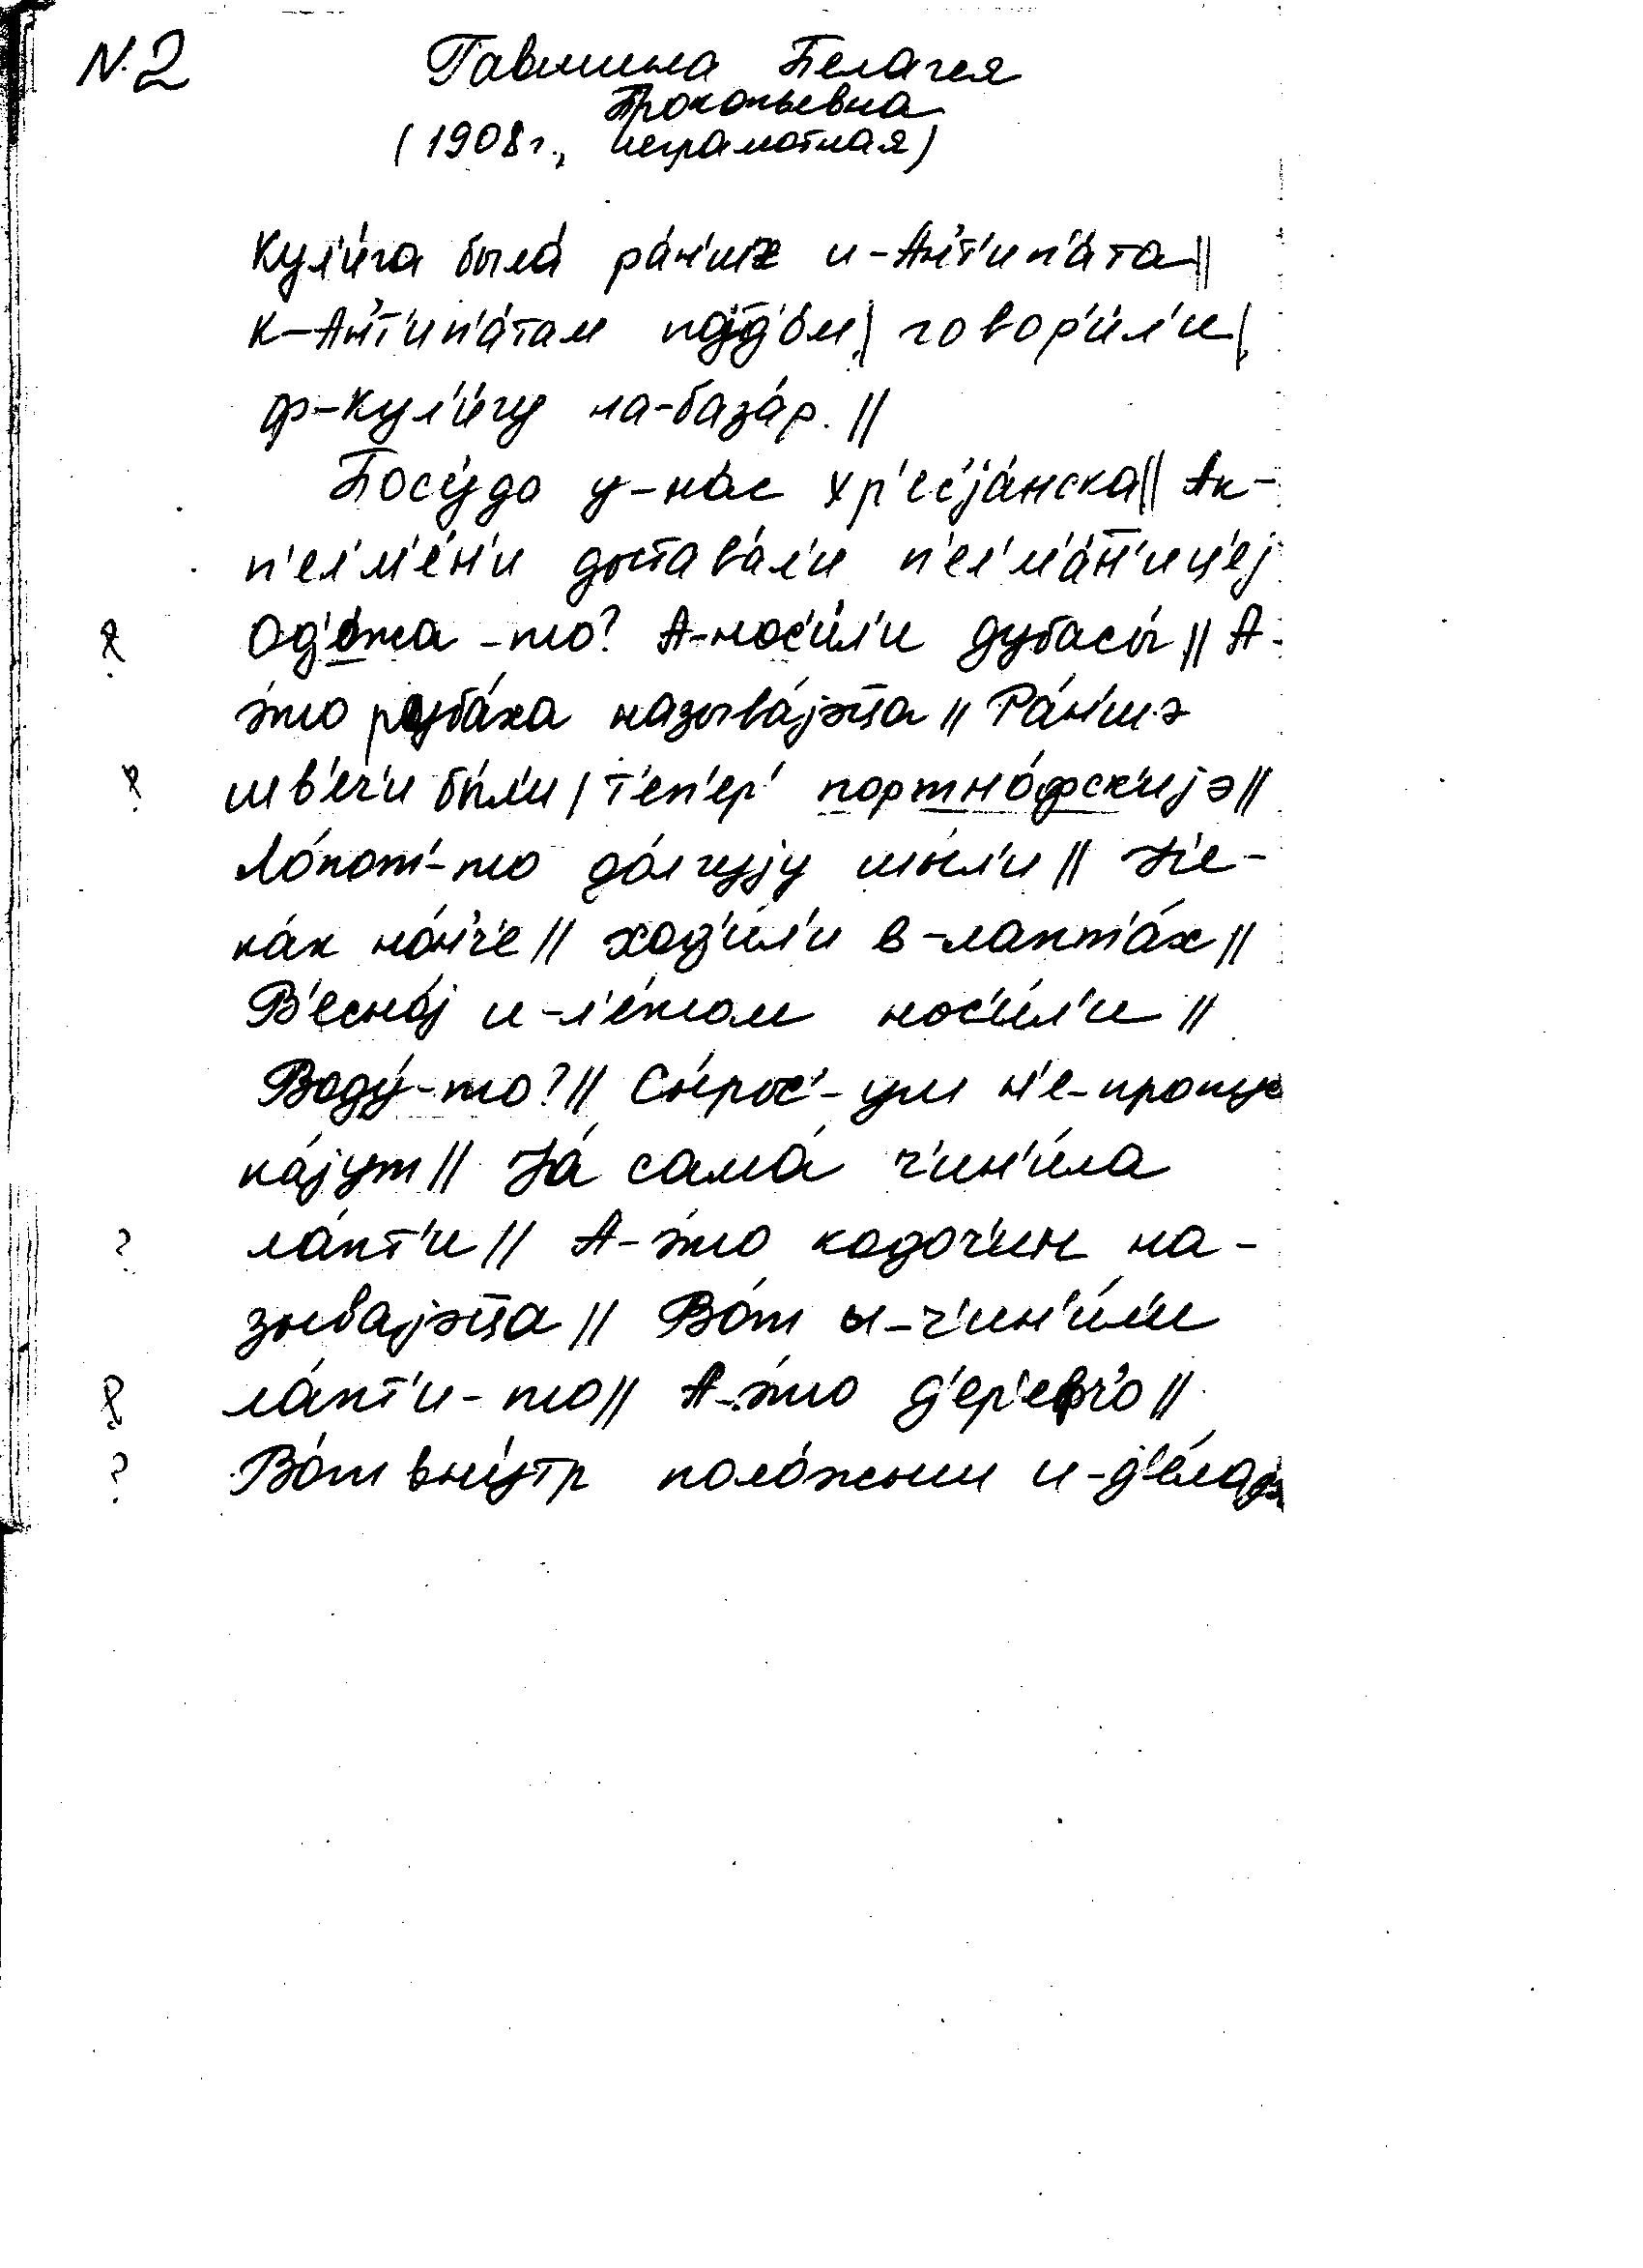 N.2 Гавшина Пелагея
Прокопьевна
(1908г., неграмотная)
Кул'и́га была́ ра́н'шэ и-Ан'т'ип'а́та ||
к-Ан'т'ип'а́там појд'о́м, | говор'и́л'и, |
ф-Кул'и́гу на-база́р. ||
Посу́да у-на́с хр'ес'jа́нска || Ак-
п'ел'м'е́н'и доставáл'и п'ел'м'а́н'иц'еj
? Од'о́жа-то? А-нос'и́л'и дубасы́ || А-
э́то руба́ха называ́jэца || Ра́н'шэ
? шв'еч'и бы́л'и | т'еп'ер' портно́фск'иjэ ||
Ло́пот'-то до́лгуjу шы́л'и || Н'е-
ка́к но́н'ч'е || ход'и́л'и в-лапт'а́х ||
В'есно́j и-л'е́том нос'и́л'и ||
Воду́-то? || Сы́рос'-уш н'е-пропус
ка́jут || Jа́ сама́ ч'ин'и́ла
? ла́пт'и || А-э́то кодоч'ик на-
зываjэца || Во́т ы-ч'ин'и́л'и
? ла́пт'и-то || А-э́то д'ер'ефч'о ||
? Во́т вну́тр поло́жыш и-д'е́лаjэ